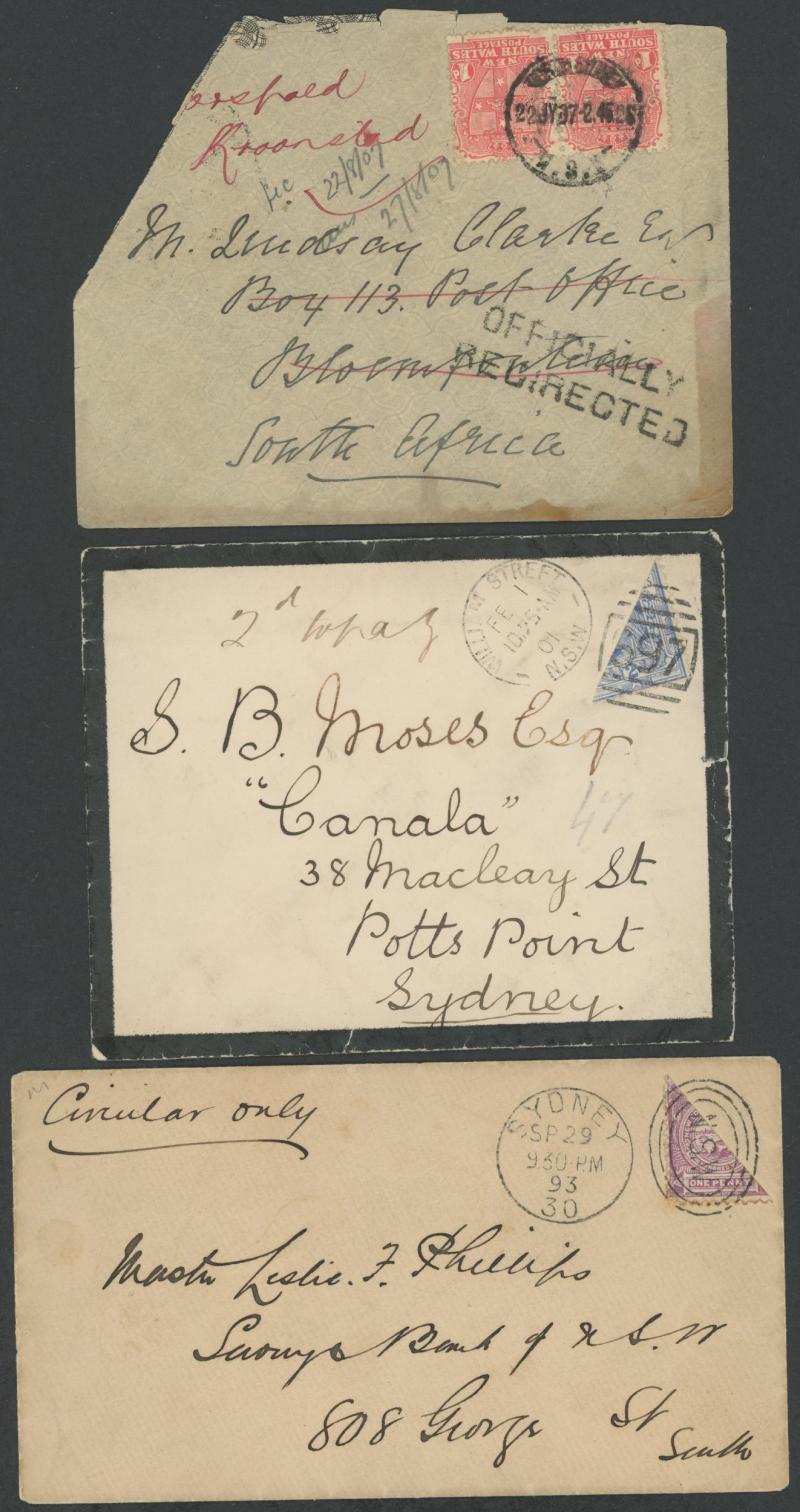 NEW
SOUTH WALES
POSTAGE
1D
NEW
SOUTH WALES
POSTAGE
1D
22JY07-2.45
N.S.W
Kroonstad
rec 22/8/07
27/8/07
M. Lindsay Clarke Esq
Box 113. Post Office
Bloemfontein
OFFICIALLY
REDIRECTED
South Africa
WILLIAM STREET
FE 1
10.35 AM
01
N.S.W
897
2d to pay
S. B. Moses Esq.
"Canala"
38 Macleay St
Potts Point
Sydney.
Circular only
SYDNEY
SP 29
9.30 PM
93
30
N.S.W
ONE PENNY
Master Leslie. F. Phillips
Savings Bank of N.S.W
808 George St
South